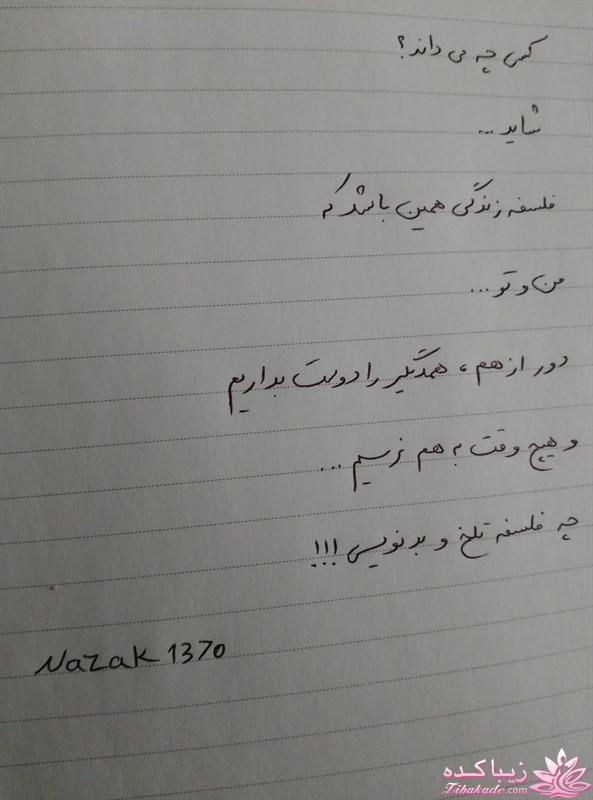 کسی چه می داند؟
شاید...
فلسفه زندگی همین باشد که
من و تو...
دور از هم، همدیگر را دوست بداریم
و هیچ وقت به هم نرسیم...
چه فلسفه تلخ و بدنویسی!!!
Nazak 1370
زیباکده
Zibakade.com